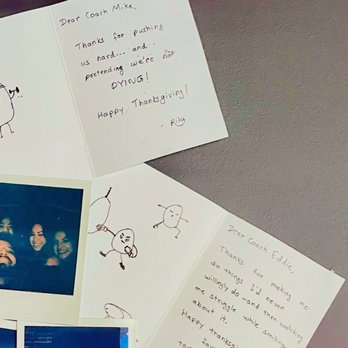 Dear Coach Mike,
Thanks for pushing
us hard... and
pretending we're not
DYING!
Happy Thanksgiving!
Dear Coach Eddie,
Thanks for making me
do things I'd never
willingly do - and then watching
me struggle while smiling
about it.
Happy thanks